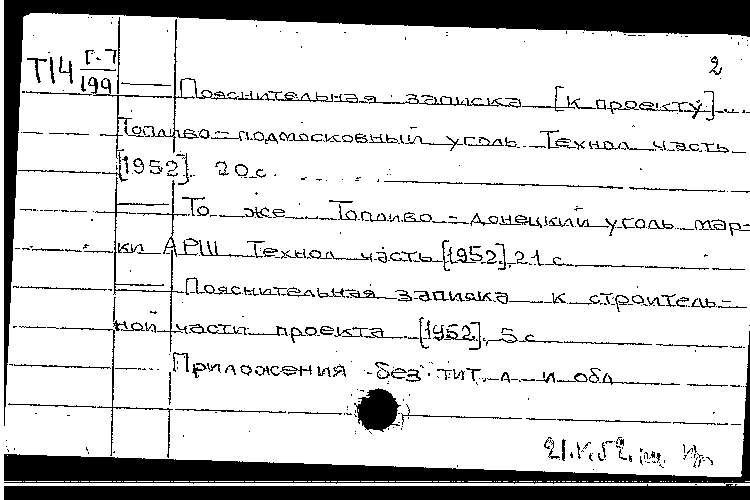 2
Т14 Г-7/199 — Пояснительная записка [к проекту]...
Топливо-подмосковный уголь Технол часть
[1952]. 20 с.
— То же Топливо-донецкий уголь мар-
ки АРШ Технол часть [1952], 21 с
— Пояснительная записка к строитель-
ной части проекта [1952], 5 с
Приложения без тит. л и обл
21.V.52.